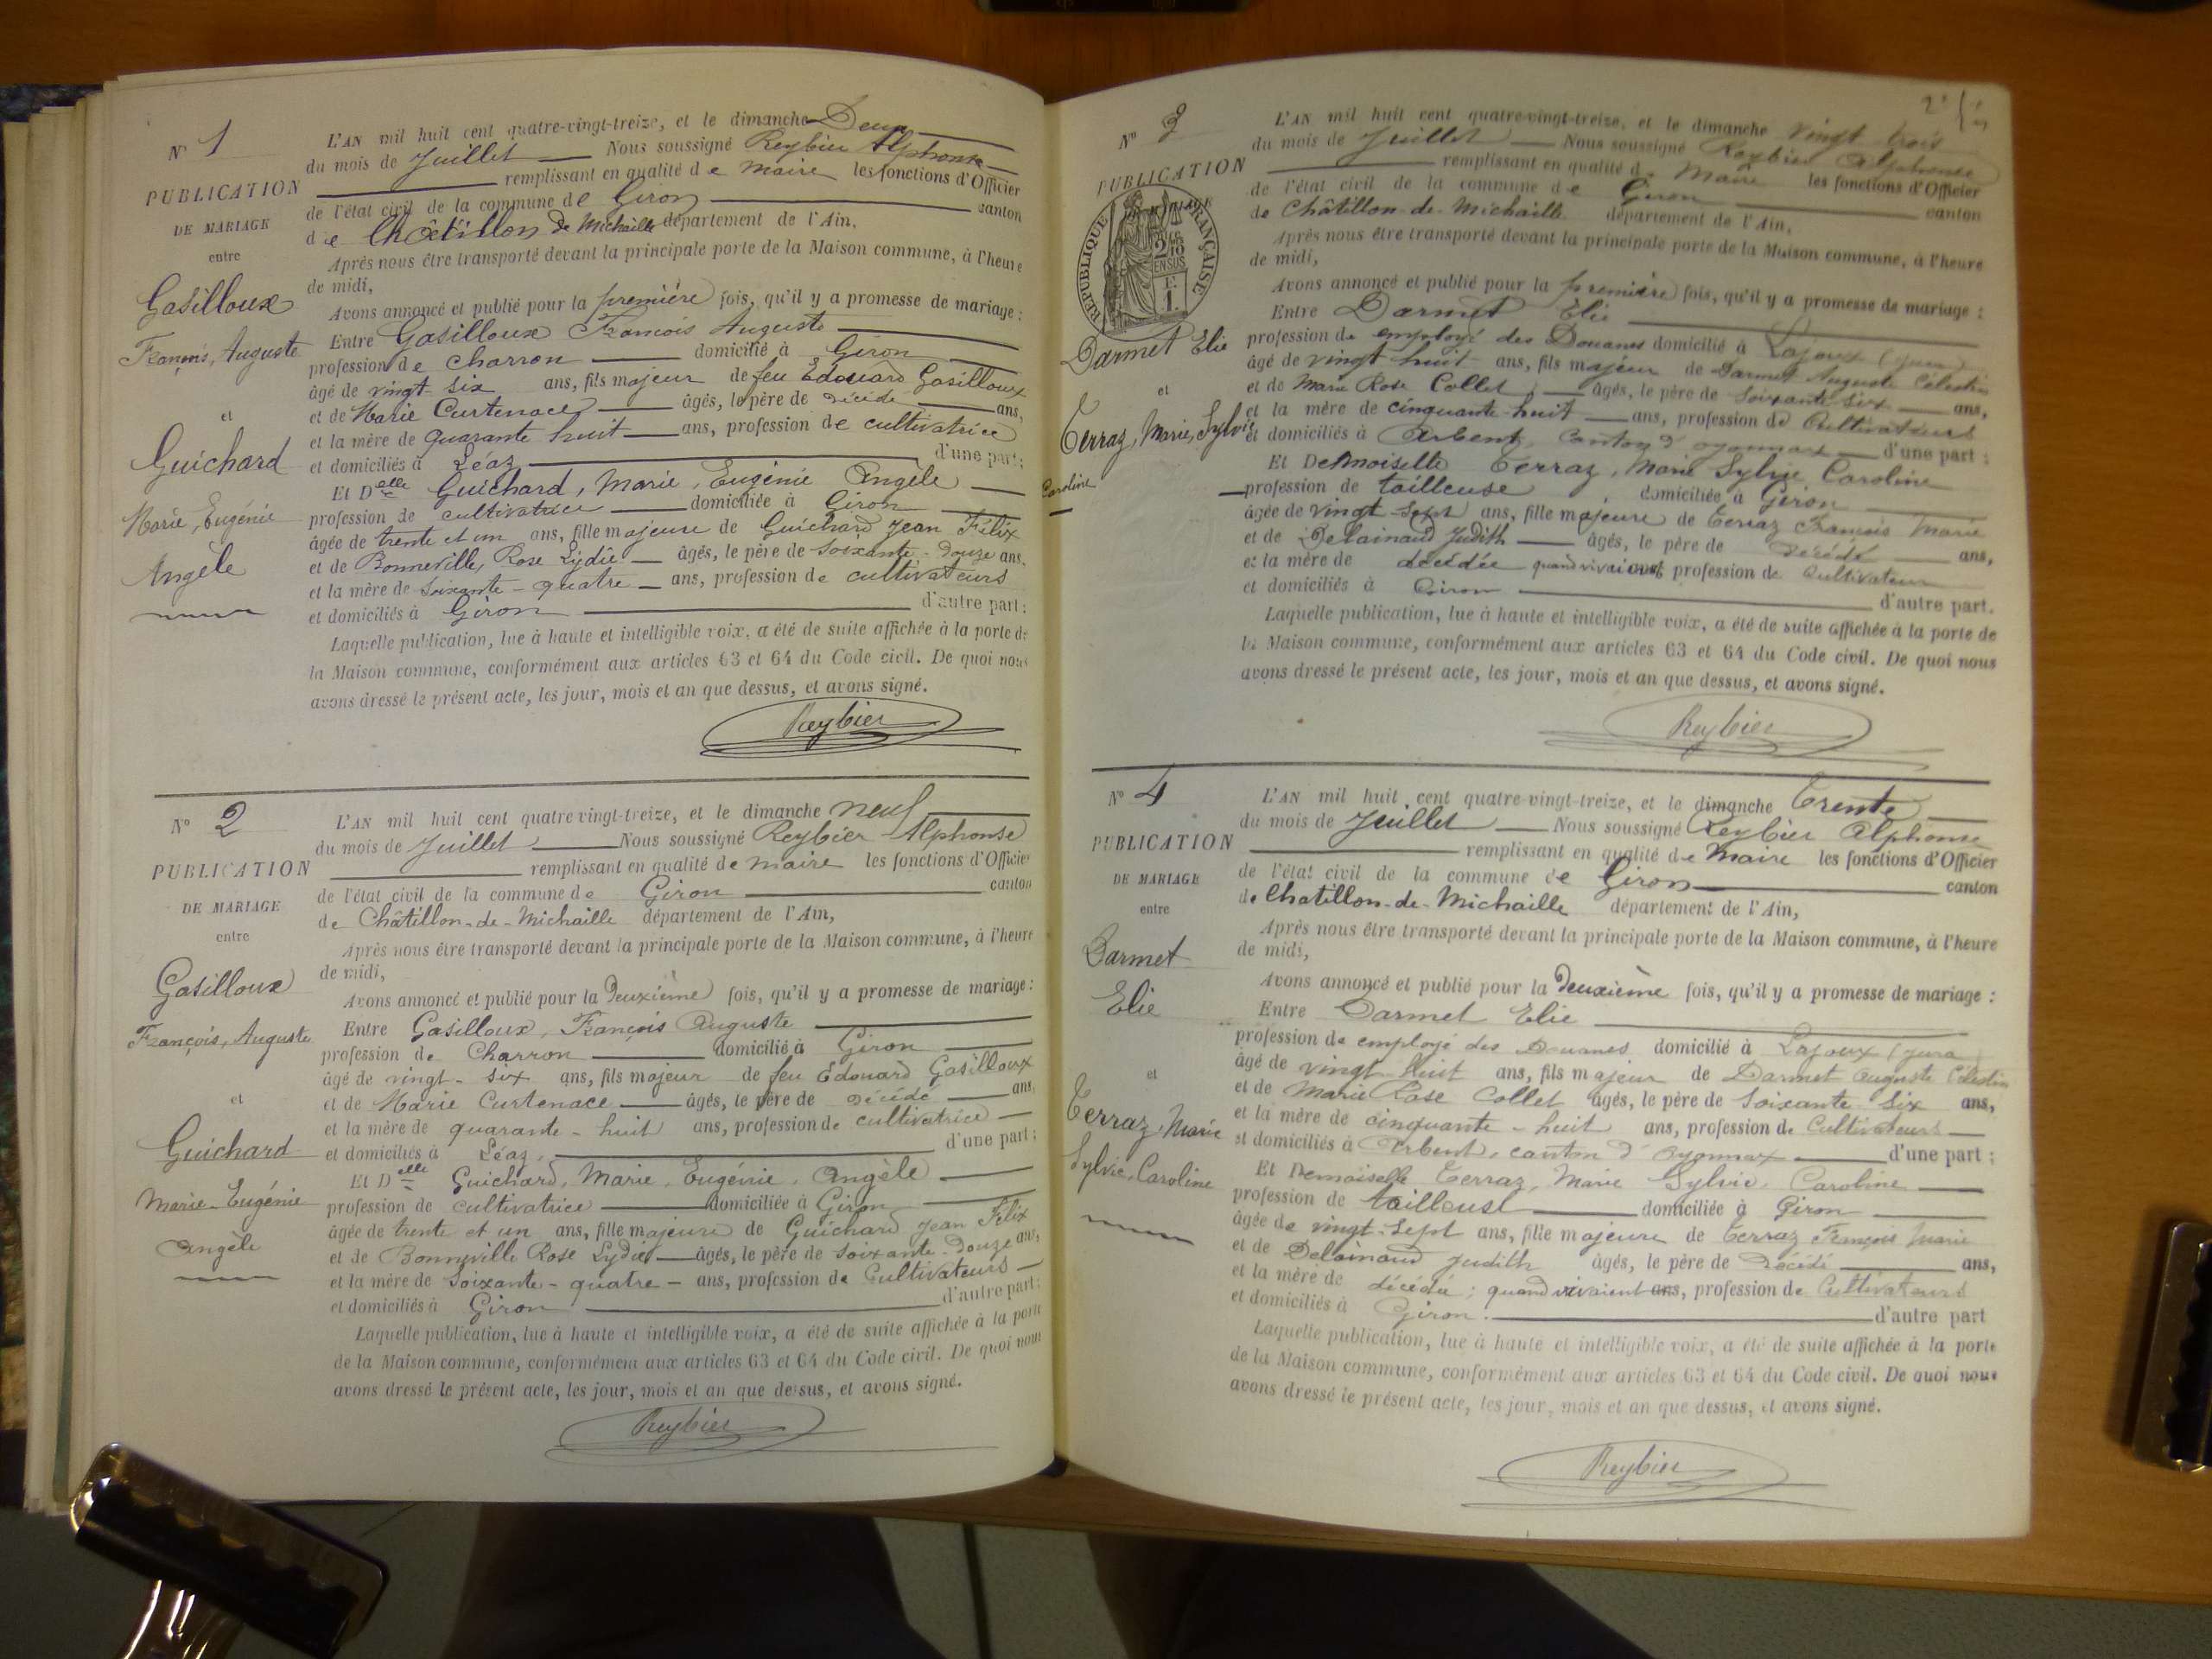 N° 1
PUBLICATION
DE MARIAGE
entre
Gasilloux
François, Auguste
et
Guichard
Marie, Eugénie
Angèle
L'AN mil huit cent quatre-vingt-treize, et le dimanche Deux
du mois de Juillet Nous soussigné Reybier Alphonse
remplissant en qualité de Maire les fonctions d'Officier
de l'état civil de la commune de Giron canton
de Châtillon de Michaille département de l'Ain,
Après nous être transporté devant la principale porte de la Maison commune, à l'heure
de midi,
Avons annoncé et publié pour la première fois, qu'il y a promesse de mariage :
Entre Gasilloux François Auguste
profession de charron domicilié à Giron
âgé de vingt-six ans, fils majeur de feu Edouard Gasilloux
et de Marie Curtenace âgés, le père de décédé ans,
et la mère de quarante huit ans, profession de cultivatrice
et domiciliés à Léaz d'une part ;
Et Delle Guichard, Marie, Eugénie Angèle
profession de cultivatrice domiciliée à Giron
âgée de trente et un ans, fille majeure de Guichard Jean Félix
et de Bonneville, Rose Lydie âgés, le père de soixante-douze ans,
et la mère de soixante-quatre ans, profession de cultivateurs
et domiciliés à Giron d'autre part ;
Laquelle publication, lue à haute et intelligible voix, a été de suite affichée à la porte de
la Maison commune, conformément aux articles 63 et 64 du Code civil. De quoi nous
avons dressé le présent acte, les jour, mois et an que dessus, et avons signé.
Reybier
N° 2
PUBLICATION
DE MARIAGE
entre
Gasilloux
François, Auguste
et
Guichard
Marie-Eugénie
Angèle
L'AN mil huit cent quatre-vingt-treize, et le dimanche neuf
du mois de Juillet Nous soussigné Reybier Alphonse
remplissant en qualité de maire les fonctions d'Officier
de l'état civil de la commune de Giron canton
de Châtillon-de-Michaille département de l'Ain,
Après nous être transporté devant la principale porte de la Maison commune, à l'heure
de midi,
Avons annoncé et publié pour la Deuxième fois, qu'il y a promesse de mariage :
Entre Gasilloux, François Auguste
profession de Charron domicilié à Giron
âgé de vingt-six ans, fils majeur de feu Edouard Gasilloux
et de Marie Curtenace âgés, le père de décédé ans,
et la mère de quarante-huit ans, profession de cultivatrice
et domiciliés à Léaz, d'une part ;
Et Delle Guichard, Marie, Eugénie, Angèle
profession de cultivatrice domiciliée à Giron
âgée de trente et un ans, fille majeure de Guichard Jean Félix
et de Bonneville Rose Lydie âgés, le père de soixante-douze ans,
et la mère de soixante-quatre ans, profession de Cultivateurs
et domiciliés à Giron d'autre part ;
Laquelle publication, lue à haute et intelligible voix, a été de suite affichée à la porte
de la Maison commune, conformément aux articles 63 et 64 du Code civil. De quoi nous
avons dressé le présent acte, les jour, mois et an que dessus, et avons signé.
Reybier
N° 3
PUBLICATION
RÉPUBLIQUE FRANÇAISE
Darmet Elie
et
Terraz, Marie, Sylvie
Caroline
L'AN mil huit cent quatre-vingt-treize, et le dimanche vingt trois
du mois de Juillet Nous soussigné Reybier Alphonse
remplissant en qualité de Maire les fonctions d'Officier
de l'état civil de la commune de Giron canton
de Châtillon-de-Michaille département de l'Ain,
Après nous être transporté devant la principale porte de la Maison commune, à l'heure
de midi,
Avons annoncé et publié pour la première fois, qu'il y a promesse de mariage :
Entre Darmet Elie
profession de employé des Douanes domicilié à Lajoux (Jura)
âgé de vingt huit ans, fils majeur de Darmet Auguste Célestin
et de Marie Rose Collet âgés, le père de soixante six ans,
et la mère de cinquante-huit ans, profession de Cultivateurs
et domiciliés à Arbent, Canton d'Oyonnax d'une part ;
Et Demoiselle Terraz, Marie Sylvie Caroline
profession de tailleuse domiciliée à Giron
âgée de vingt-sept ans, fille majeure de Terraz François Marie
et de Delainaud Judith âgés, le père de décédé ans,
et la mère de décédée quand vivaient profession de Cultivateurs
et domiciliés à Giron d'autre part.
Laquelle publication, lue à haute et intelligible voix, a été de suite affichée à la porte de
la Maison commune, conformément aux articles 63 et 64 du Code civil. De quoi nous
avons dressé le présent acte, les jour, mois et an que dessus, et avons signé.
Reybier
N° 4
PUBLICATION
DE MARIAGE
entre
Darmet
Elie
et
Terraz, Marie
Sylvie, Caroline
L'AN mil huit cent quatre-vingt-treize, et le dimanche Trente
du mois de Juillet Nous soussigné Reybier Alphonse
remplissant en qualité de Maire les fonctions d'Officier
de l'état civil de la commune de Giron canton
de Chatillon-de-Michaille département de l'Ain,
Après nous être transporté devant la principale porte de la Maison commune, à l'heure
de midi,
Avons annoncé et publié pour la Deuxième fois, qu'il y a promesse de mariage :
Entre Darmet Elie
profession de employé des Douanes domicilié à Lajoux (Jura)
âgé de vingt huit ans, fils majeur de Darmet Auguste Célestin
et de Marie Rose Collet âgés, le père de soixante six ans,
et la mère de cinquante-huit ans, profession de Cultivateurs
et domiciliés à Arbent, canton d'Oyonnax d'une part ;
Et Demoiselle Terraz, Marie Sylvie, Caroline
profession de tailleuse domiciliée à Giron
âgée de vingt-sept ans, fille majeure de Terraz François Marie
et de Delainaud Judith âgés, le père de décédé ans,
et la mère de décédée ; quand vivaient ans, profession de Cultivateurs
et domiciliés à Giron. d'autre part
Laquelle publication, lue à haute et intelligible voix, a été de suite affichée à la porte
de la Maison commune, conformément aux articles 63 et 64 du Code civil. De quoi nous
avons dressé le présent acte, les jour, mois et an que dessus, et avons signé.
Reybier